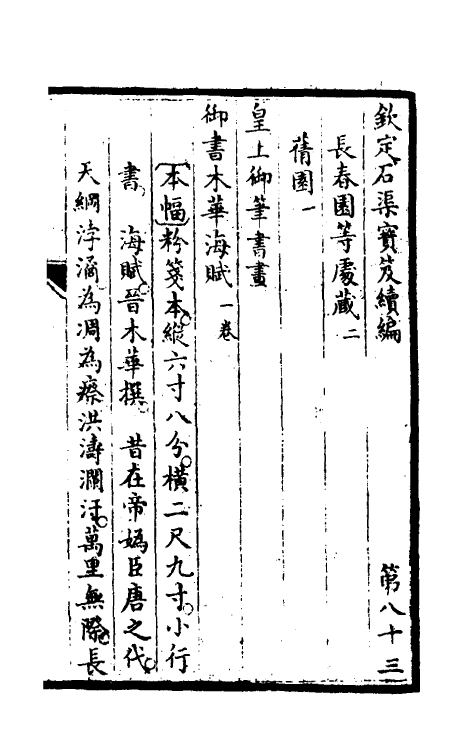 欽定石渠寶笈續編　第八十三
長春園等處藏二
蒨園一
皇上御筆書畫
御書木華海賦一卷
本幅粉箋本縱六寸八分橫二尺九寸小行
書　海賦晉木華撰　昔在帝媯臣唐之代
天綱浡潏為凋為瘵洪濤瀾汗萬里無際長